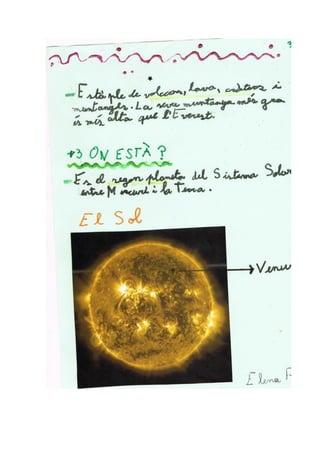 - Està ple de volcans, lava, cràters i
muntanyes. La seva muntanya més gran
és més alta que l'Everest.
+3 ON ESTÀ?
- Es el segon planeta del Sistema Solar
entre Mercuri i la Terra.
El Sol
Venus
Elena